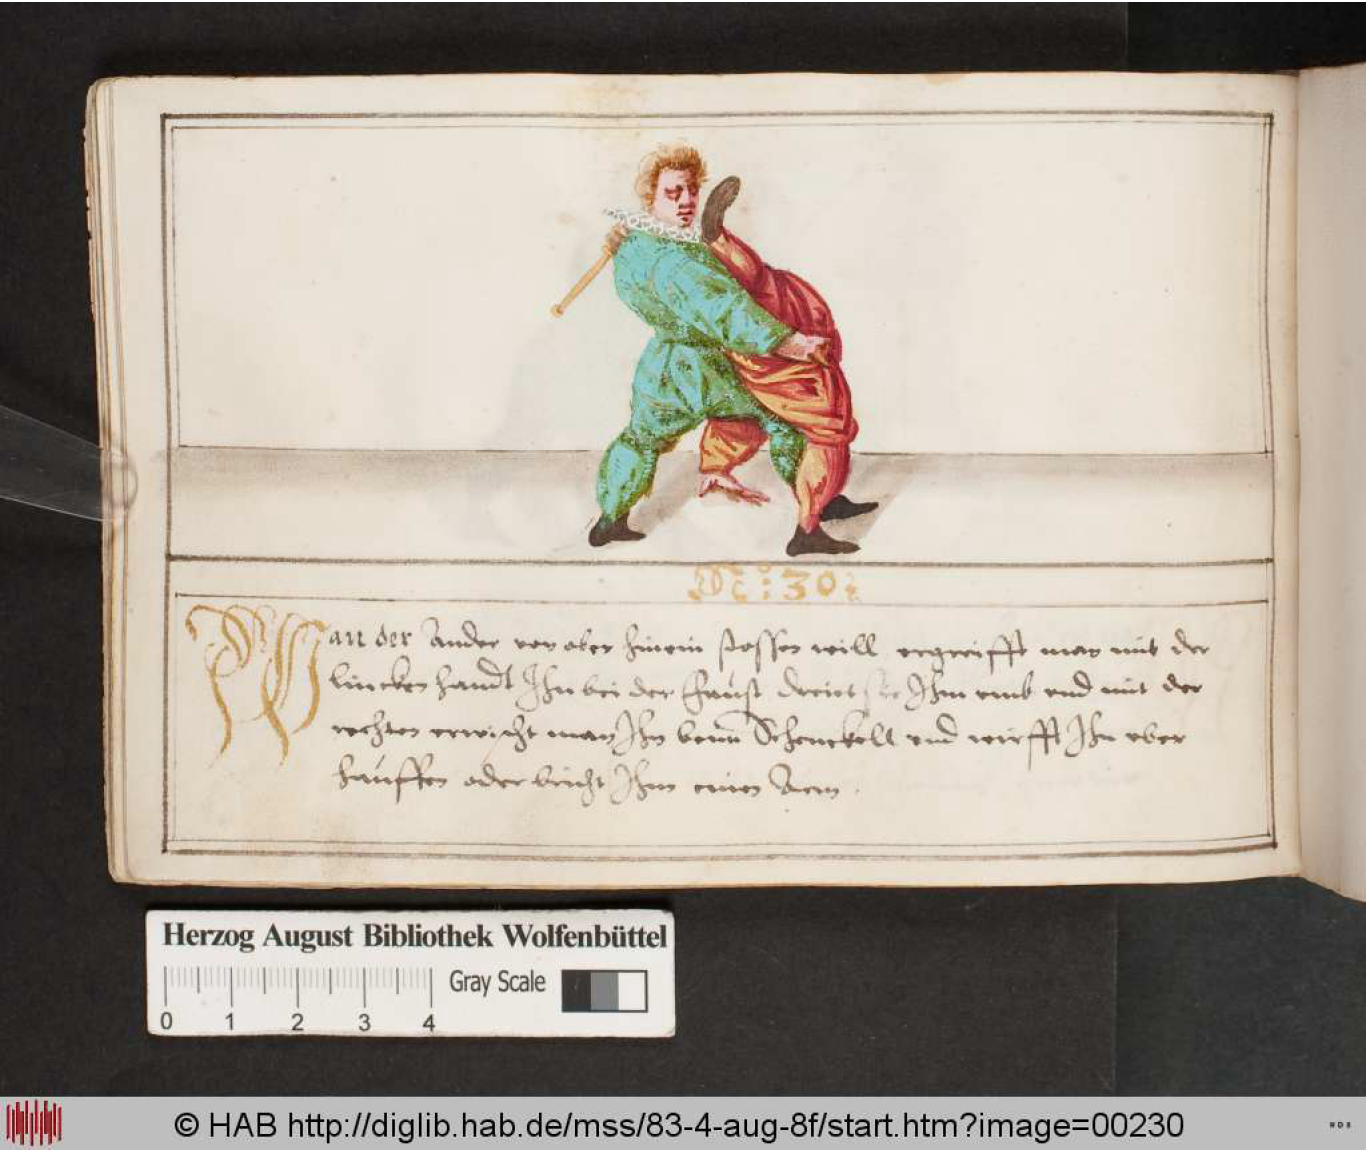 Nc: 30:
Wan der Ander von oben hinein stossen will ergreifft man mit der
lincken handt Ihn bei der faust dreiet sie Ihm umb und mit der
rechten erwischt man Ihn beim Schenckell und wirfft Ihn uber
hauffen oder bricht Ihm einen Arm.
Herzog August Bibliothek Wolfenbüttel
Gray Scale
0 1 2 3 4
© HAB http://diglib.hab.de/mss/83-4-aug-8f/start.htm?image=00230